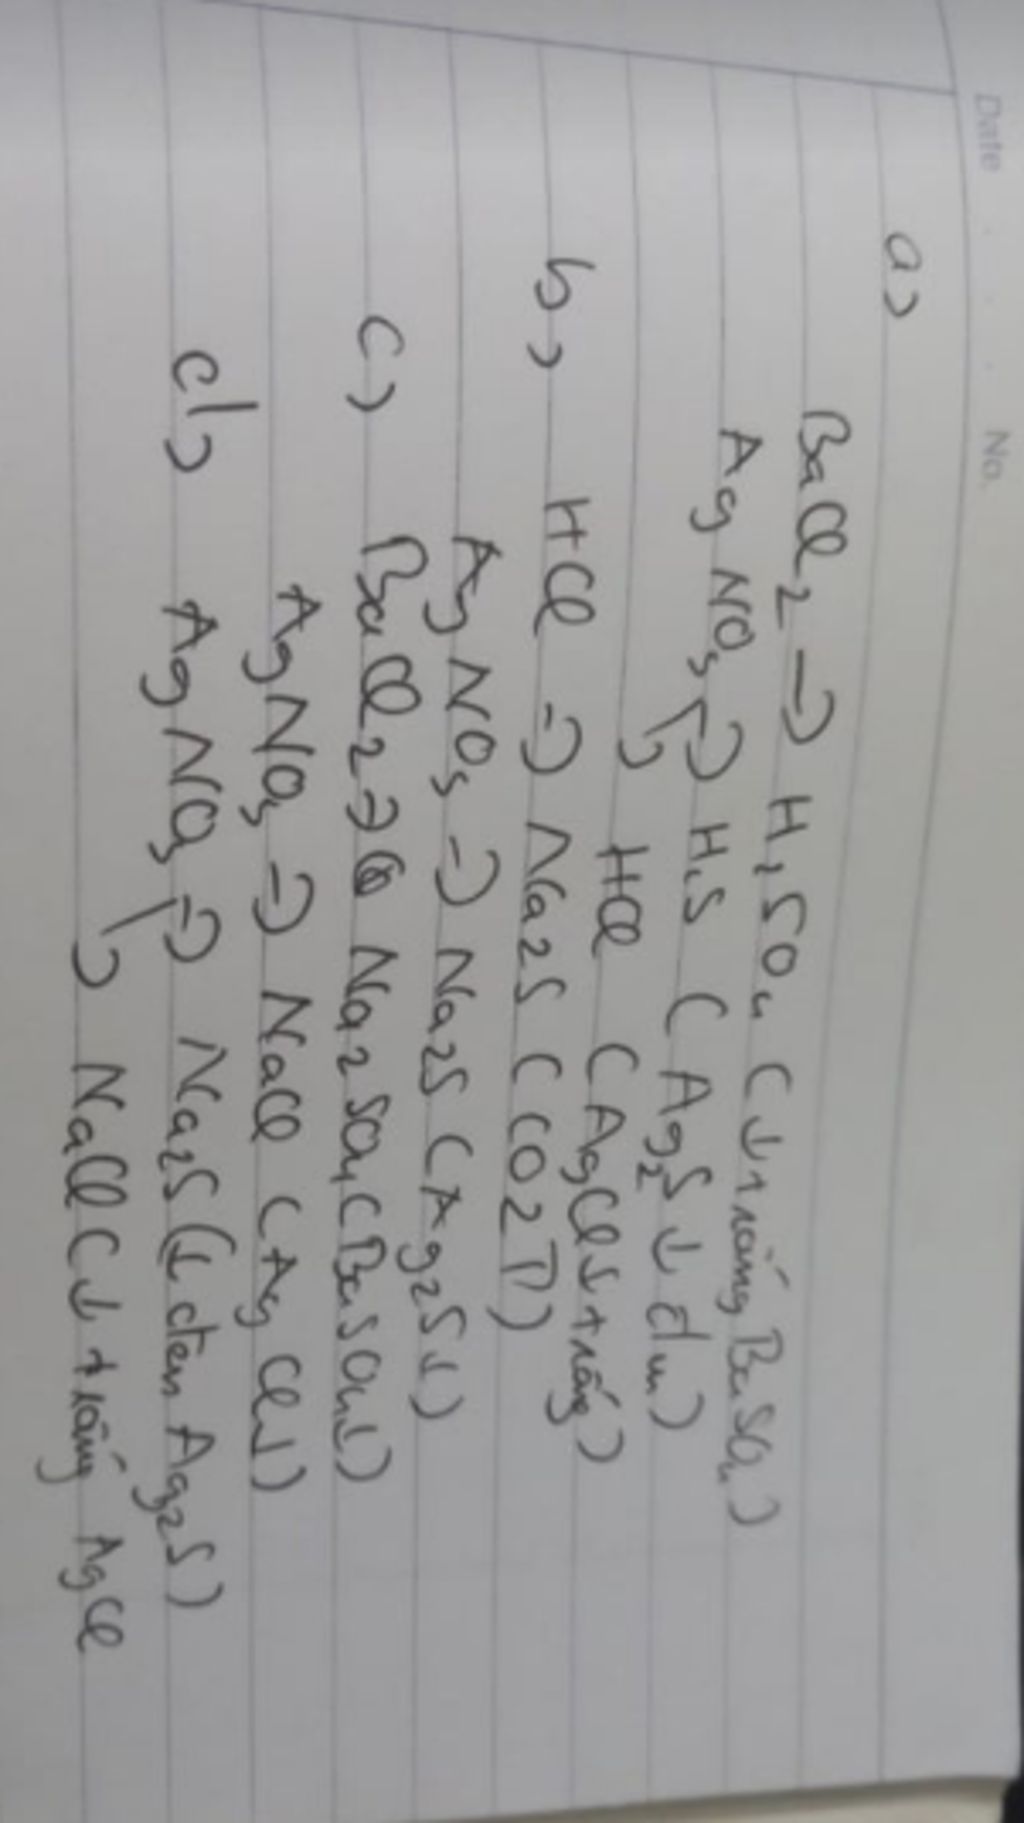 Date . . . No.
a)
BaCl2 → H2SO4 (↓ trắng BaSO4)
AgNO3 → H2S (Ag2S ↓ đen)
→ HCl (AgCl ↓ trắng)
b) HCl → Na2S (CO2↑)
AgNO3 → Na2S (Ag2S↓)
c) BaCl2 → Na2SO4 (BaSO4↓)
AgNO3 → NaCl (AgCl↓)
d) AgNO3 → Na2S (↓ đen Ag2S)
→ NaCl (↓ trắng AgCl